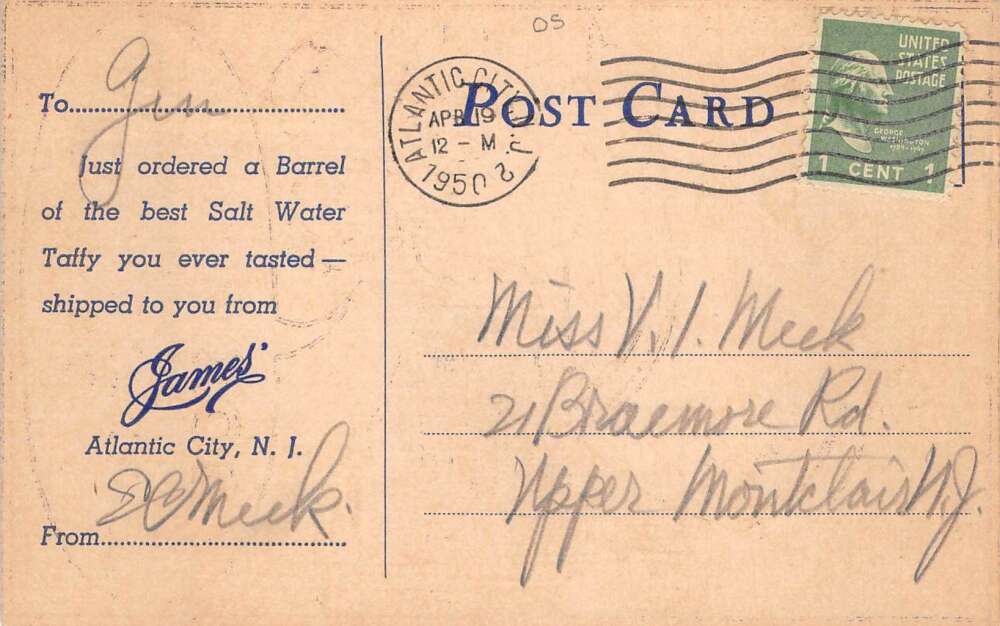 05
To Gin
Just ordered a Barrel
of the best Salt Water
Taffy you ever tasted —
shipped to you from
James'
Atlantic City, N. J.
From E C Meek.
POST CARD
ATLANTIC CITY, N.J. 2
APR 19
12 - M
1950
UNITED
STATES
POSTAGE
GEORGE
WASHINGTON
1789-1797
1 CENT 1
Miss V. I. Meek
21 Braemore Rd.
Upper Montclair N.J.